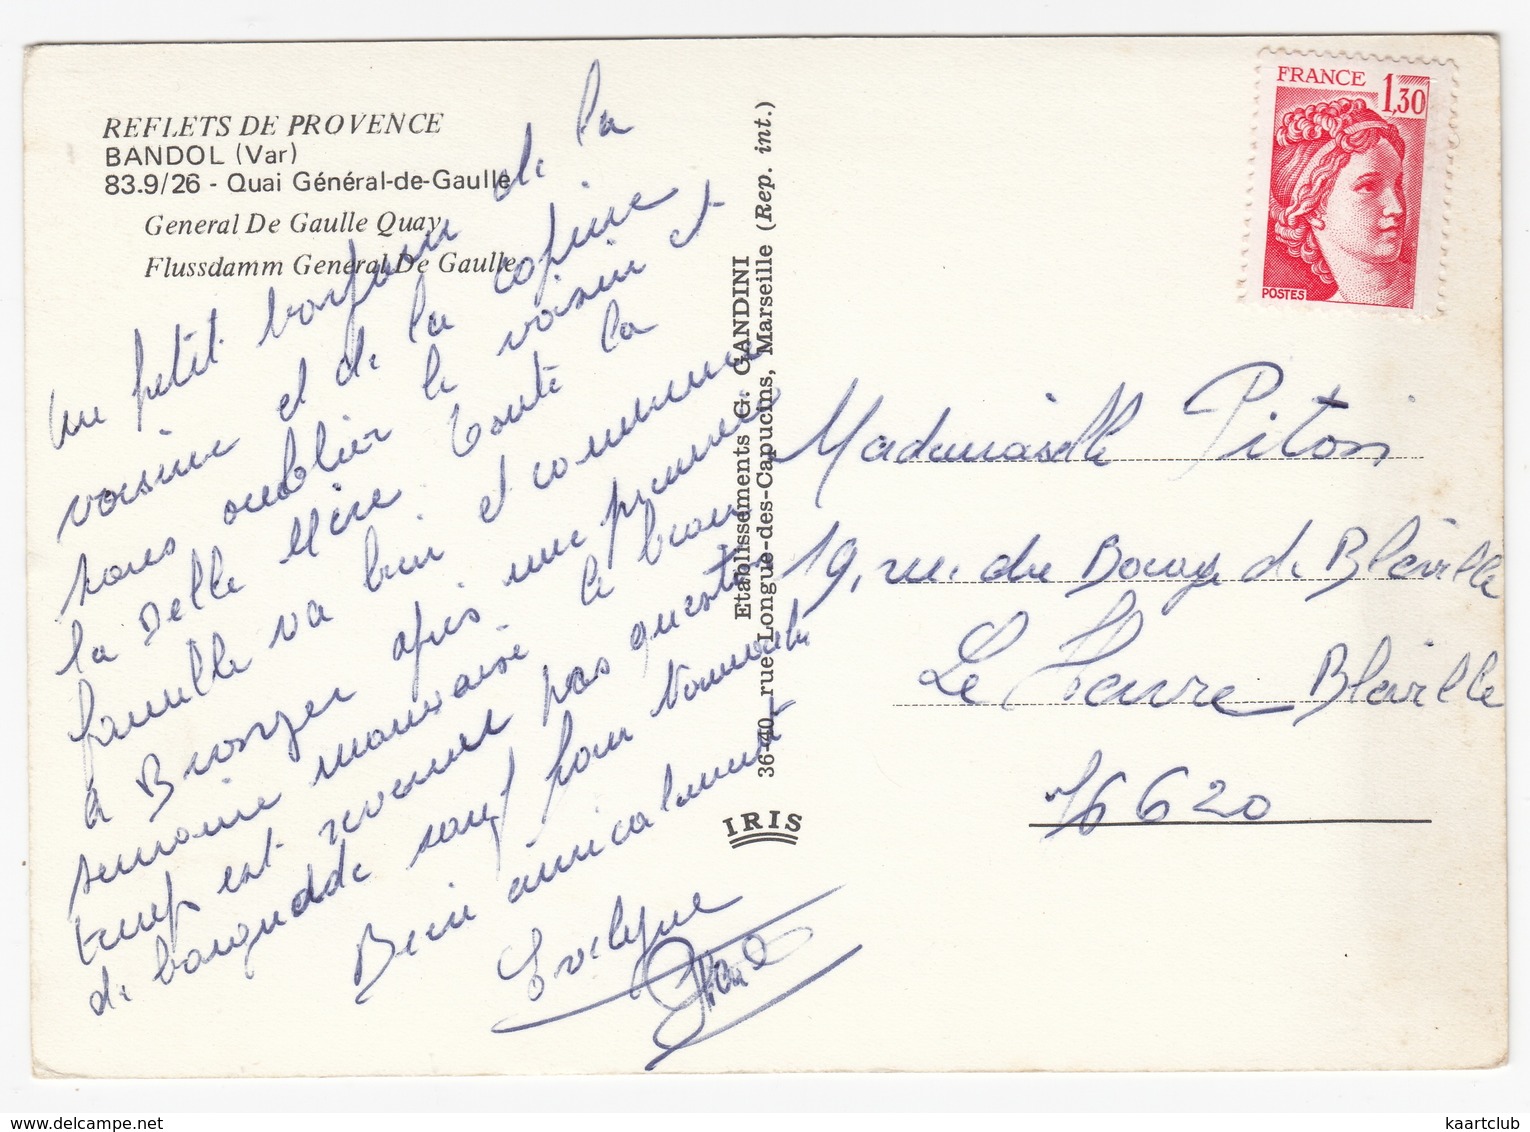 REFLETS DE PROVENCE
BANDOL (Var)
83.9/26 - Quai Général-de-Gaulle
General De Gaulle Quay
Flussdamm General De Gaulle
Un petit bonjour de la
voisine et de la copine
sans oublier le voisin et
la Delle Mère. Toute la
famille va bien et commence
à Bronzer après une première
semaine mauvaise le beau
temps est revenu pas question
de baignade sauf pour
Bien amicalement
Evelyne
Etablissements G. GANDINI
36-40, rue Longue-des-Capucins, Marseille (Rep. int.)
IRIS
FRANCE 1,30
POSTES
Mademoiselle Piton
19, rue du Bocage de Bléville
Le Havre Bléville
76620
kaartclub